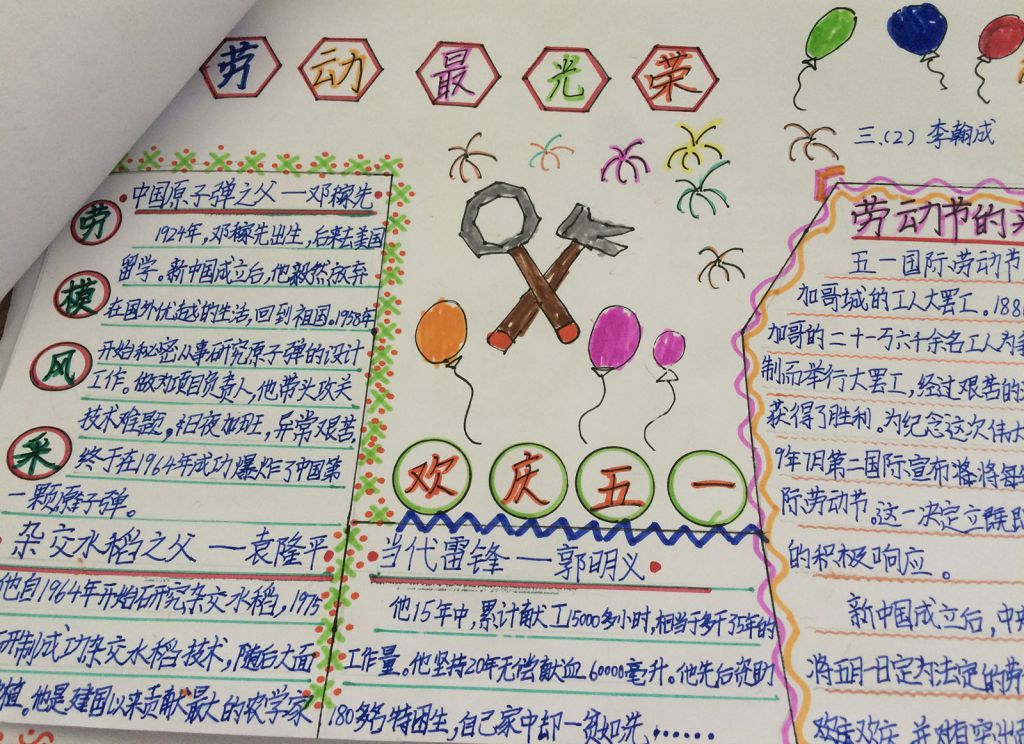 劳动最光荣
三.(2) 李翰成
劳模风采
中国原子弹之父—邓稼先
1924年,邓稼先出生,后来去美国
留学。新中国成立后,他毅然放弃
在国外优越的生活,回到祖国。1958年
开始秘密从事研究原子弹的设计
工作。做为项目负责人,他带头攻关
技术难题,日夜加班,异常艰苦
终于在1964年成功爆炸了中国第
一颗原子弹。
杂交水稻之父—袁隆平
他自1964年开始研究杂交水稻,1975
研制成功杂交水稻技术,随后大面
植。他是建国以来贡献最大的农学家
欢庆五一
当代雷锋—郭明义
他15年中,累计献工15000多小时,相当于多干了5年的
工作量。他坚持20年无偿献血60000毫升。他先后资助
180多名特困生,自己家中却一贫如洗......
劳动节的
五一国际劳动节
加哥城的工人大罢工。188
加哥的二十一万六千余名工人为
制而举行大罢工,经过艰苦的
获得了胜利。为纪念这次伟大
9年7月第二国际宣布将将每
际劳动节。这一决定立既
的积极响应。
新中国成立后,中
将五月一日定为法定的劳
欢庆欢庆,并对有突出